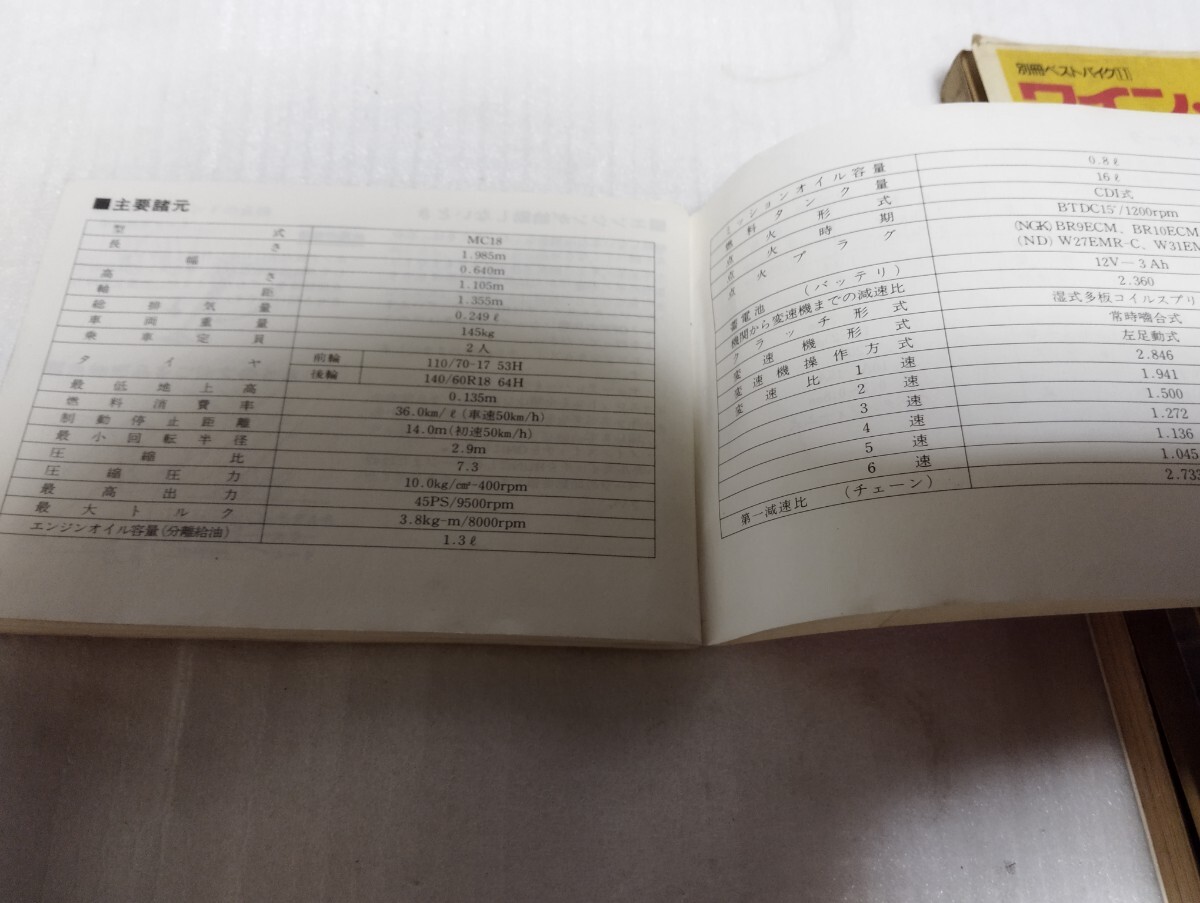 別冊ベストバイク11
■主要諸元
型式 MC18
長さ 1.985m
幅 0.640m
高さ 1.105m
軸距 1.355m
総排気量 0.249ℓ
車両重量 145kg
乗車定員 2人
タイヤ 前輪 110/70-17 53H
後輪 140/60R18 64H
最低地上高 0.135m
燃料消費率 36.0km/ℓ(車速50km/h)
制動停止距離 14.0m(初速50km/h)
最小回転半径 2.9m
圧縮比 7.3
圧縮圧力 10.0kg/㎠-400rpm
最高出力 45PS/9500rpm
最大トルク 3.8kg-m/8000rpm
エンジンオイル容量(分離給油) 1.3ℓ
ミッションオイル容量 0.8ℓ
燃料タンク量 16ℓ
点火形式 CDI式
点火時期 BTDC15°/1200rpm
点火プラグ (NGK)BR9ECM、BR10ECM
(ND)W27EMR-C、W31EM
蓄電池(バッテリ) 12V―3Ah
機関から変速機までの減速比 2.360
クラッチ形式 湿式多板コイルスプリ
変速機形式 常時噛合式
変速機操作方式 左足動式
変速比 1速 2.846
2速 1.941
3速 1.500
4速 1.272
5速 1.136
6速 1.045
第一減速比(チェーン) 2.733